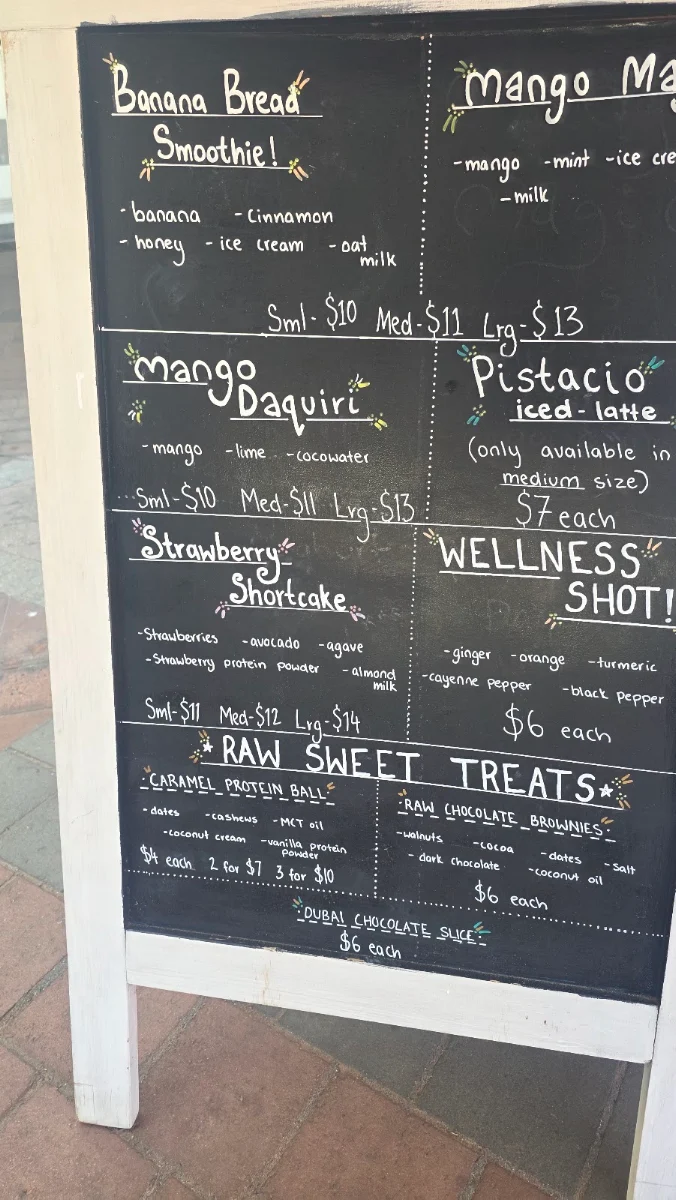 Banana Bread
Smoothie!
- banana - Cinnamon
- honey - ice cream - oat
milk
Mango
-mango -mint -ice
-milk
Sml- $10 Med-$11 Lrg-$13
Mango
Daquiri
-mango -lime -cocowater
Sml-$10 Med-$11 Lrg-$13
Pistacio
iced-latte
(only available in
medium size)
$7 each
Strawberry
Shortcake
-Strawberries -avocado -agave
-Strawberry protein powder -almond
milk
Sml-$11 Med-$12 Lrg-$14
WELLNESS
SHOT!
-ginger -orange -turmeric
-cayenne pepper -black pepper
$6 each
RAW SWEET TREATS
CARAMEL PROTEIN BALL
-dates -cashews -MCT oil
-coconut cream -vanilla protein
powder
$4 each 2 for $7 3 for $10
RAW CHOCOLATE BROWNIES
-walnuts -cocoa -dates -salt
- dark chocolate -coconut oil
$6 each
DUBAI CHOCOLATE SLICE
$6 each